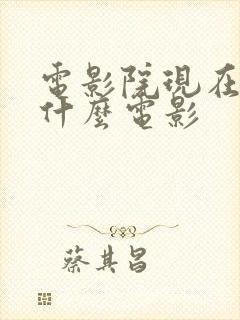 電影院現在
什麼電影
蔡其昌